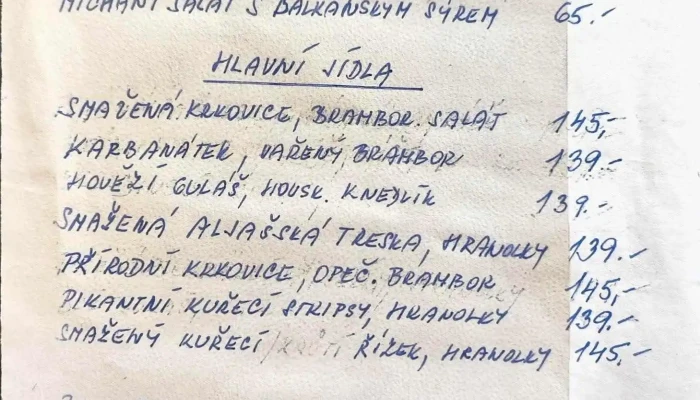 MÍCHANÝ SALÁT S BALKÁNSKÝM SÝREM 65.-
HLAVNÍ JÍDLA
SMAŽENÁ KRKOVICE, BRAMBOR. SALÁT 145,-
KARBANÁTEK, VAŘENÝ BRAMBOR 139.-
HOVĚZÍ GULÁŠ, HOUSK. KNEDLÍK 139.-
SMAŽENÁ ALJAŠSKÁ TRESKA, HRANOLKY 139.-
PŘÍRODNÍ KRKOVICE, OPEČ. BRAMBOR 145,-
PIKANTNÍ KUŘECÍ STRIPSY, HRANOLKY 139.-
SMAŽENÝ KUŘECÍ ŘÍZEK, HRANOLKY 145.-